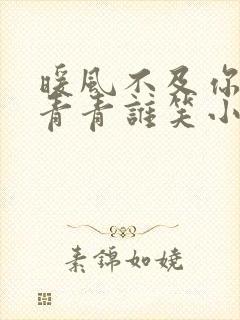 暖風不及你
青青誰笑小
素錦如嬈